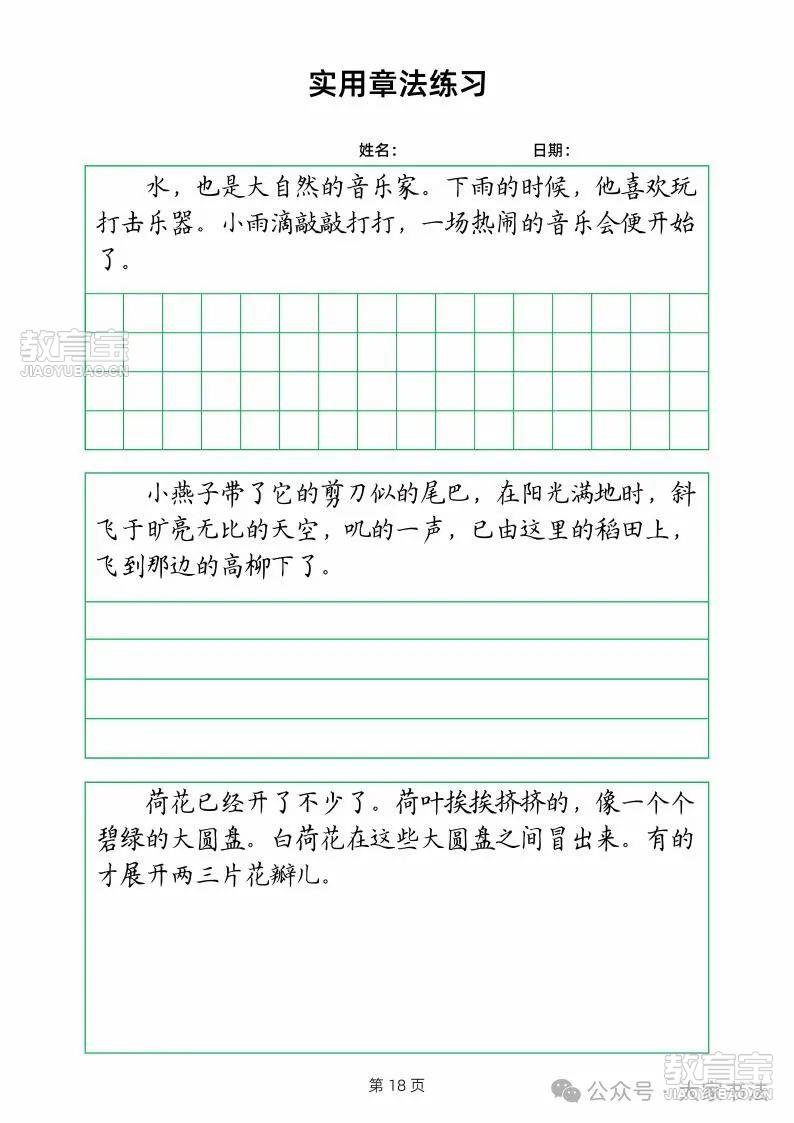 实用章法练习
姓名： 日期：
水，也是大自然的音乐家。下雨的时候，他喜欢玩
打击乐器。小雨滴敲敲打打，一场热闹的音乐会便开始
了。
教育宝
JIAOYUBAO.CN
小燕子带了它的剪刀似的尾巴，在阳光满地时，斜
飞于旷亮无比的天空，叽的一声，已由这里的稻田上，
飞到那边的高柳下了。
荷花已经开了不少了。荷叶挨挨挤挤的，像一个个
碧绿的大圆盘。白荷花在这些大圆盘之间冒出来。有的
才展开两三片花瓣儿。
第 18 页
教育宝
JIAOYUBAO.CN
公众号 · 大家书法